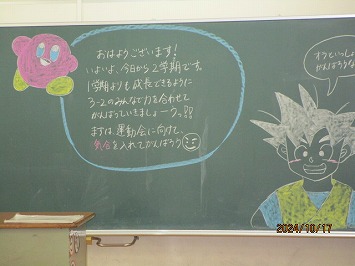 おはようございます!
いよいよ、今日から2学期です。
1学期よりも成長できるように
3-2のみんなで力を合わせて
がんばっていきましょーうっ!!
まずは、運動会に向けて、
気合を入れてがんばろう
オラといっしょに
がんばろうな
2024/10/17